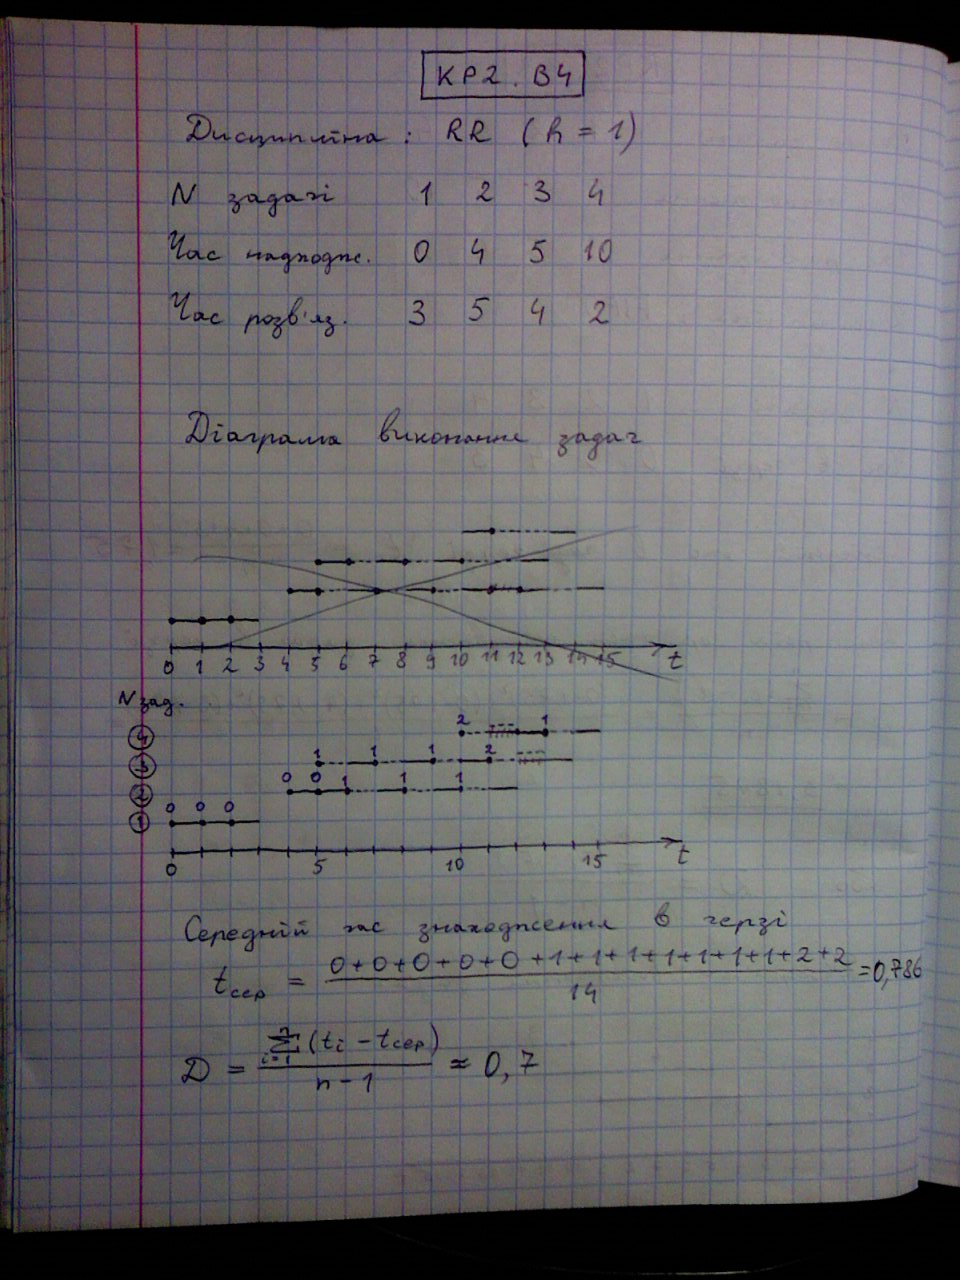 КР2. В4
Дисципліна: RR (h = 1)
N задачі 1 2 3 4
Час надходж. 0 4 5 10
Час розв'яз. 3 5 4 2
Діаграма виконання задач
0 1 2 3 4 5 6 7 8 9 10 11 12 13 14 15 t
N зад.
4 2 1
3 1 1 1 2
2 0 0 1 1 1
1 0 0 0
0 5 10 15 t
Середній час знаходження в черзі
tсер = 0+0+0+0+0+1+1+1+1+1+1+1+2+2 / 14 = 0,786
D = n Σ i=1 (ti - tсер) / n-1 ≈ 0,7